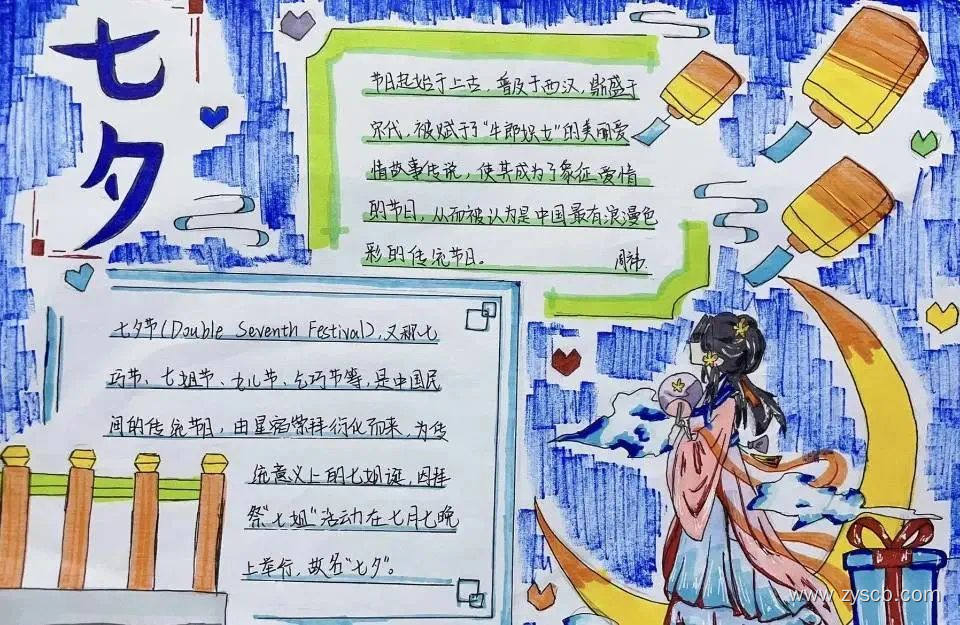 七夕
节日起始于上古，普及于西汉，鼎盛于
宋代，被赋予了“牛郎织女”的美丽爱
情故事传说，使其成为了象征爱情
的节日，从而被认为是中国最有浪漫色
彩的传统节日。
七夕节(Double Seventh Festival)，又称七
巧节、七姐节、女儿节、乞巧节等，是中国民
间的传统节日，由星宿崇拜衍化而来，为传
统意义上的七姐诞，因拜
祭“七姐”活动在七月七晚
上举行，故名“七夕”。
www.zyscb.com